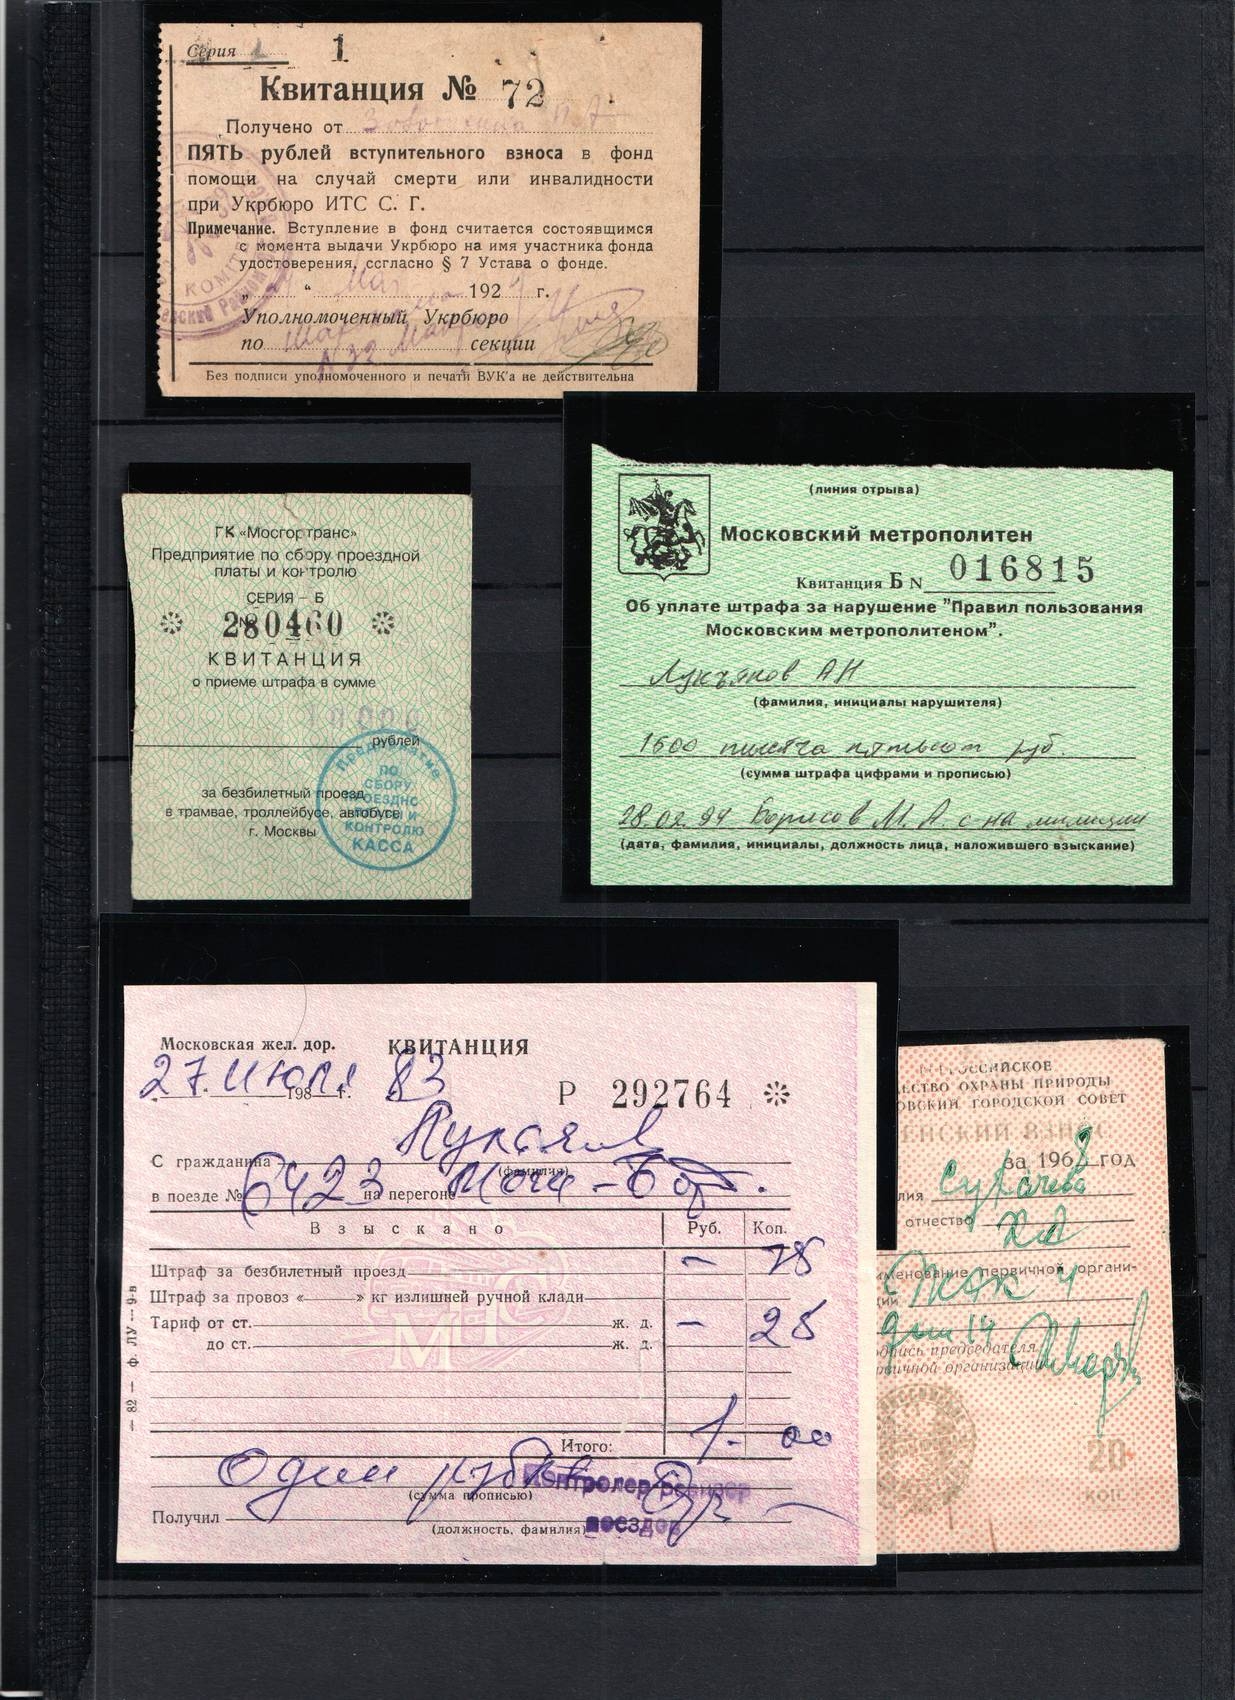 Серия 1
Квитанция № 72
Получено от
ПЯТЬ рублей вступительного взноса в фонд
помощи на случай смерти или инвалидности
при Укрбюро ИТС С. Г.
Примечание. Вступление в фонд считается состоявшимся
с момента выдачи Укрбюро на имя участника фонда
удостоверения, согласно § 7 Устава о фонде.
„ “ 192 г.
Уполномоченный Укрбюро
по секции
Без подписи уполномоченного и печати ВУК'а не действительна
ГК «Мосгортранс»
Предприятие по сбору проездной
платы и контролю
СЕРИЯ – Б
№ 280460
КВИТАНЦИЯ
о приеме штрафа в сумме
10000
рублей
за безбилетный проезд
в трамвае, троллейбусе, автобусе
г. Москвы
Предприятие
ПО
СБОРУ
ПРОЕЗДНОЙ
ПЛАТЫ И
КОНТРОЛЮ
КАССА
(линия отрыва)
Московский метрополитен
Квитанция Б N 016815
Об уплате штрафа за нарушение "Правил пользования
Московским метрополитеном".
Лукъянов АН
(фамилия, инициалы нарушителя)
1500 тысяча пятьсот руб.
(сумма штрафа цифрами и прописью)
28.02.94 Борисов М.А. с-на милиции
(дата, фамилия, инициалы, должность лица, наложившего взыскание)
Московская жел. дор. КВИТАНЦИЯ
27 июля 198 г. 83
Р 292764
С гражданина Лукъянов
(фамилия)
в поезде № 6423 на перегоне
Взыскано Руб. Коп.
Штраф за безбилетный проезд – 75
Штраф за провоз « » кг излишней ручной клади
Тариф от ст. ж. д. – 25
до ст. ж. д.
МПС
Итого: 1 - 00
Один рубль
(сумма прописью)
Контролер-ревизор
Получил поездов
(должность, фамилия)
— 82 — Ф. ЛУ — 9-в
ВСЕРОССИЙСКОЕ
ЕСТВО ОХРАНЫ ПРИРОДЫ
ОВСКИЙ ГОРОДСКОЙ СОВЕТ
ЕНСКИЙ ВЗНОС
за 1968 год
лия
отчество
именование первичной органи-
ции ЖЭК 4
дом 14
одпись председателя
рвичной организации
30